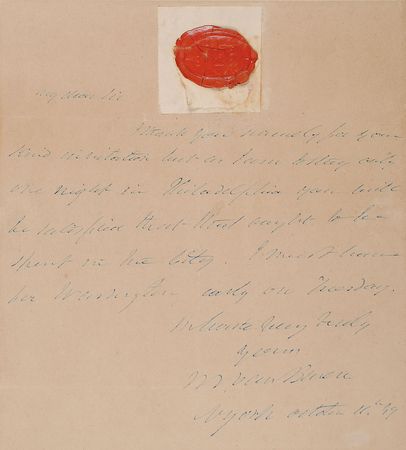 My dear Sir
I thank you sincerely for your
kind invitation but as I am to stay only
one night in Philadelphia you will
be satisfied that that ought to be
spent in the City. I must leave
for Washington early on Tuesday.
In haste very truly
yours
M Van Buren
NYork October 11th